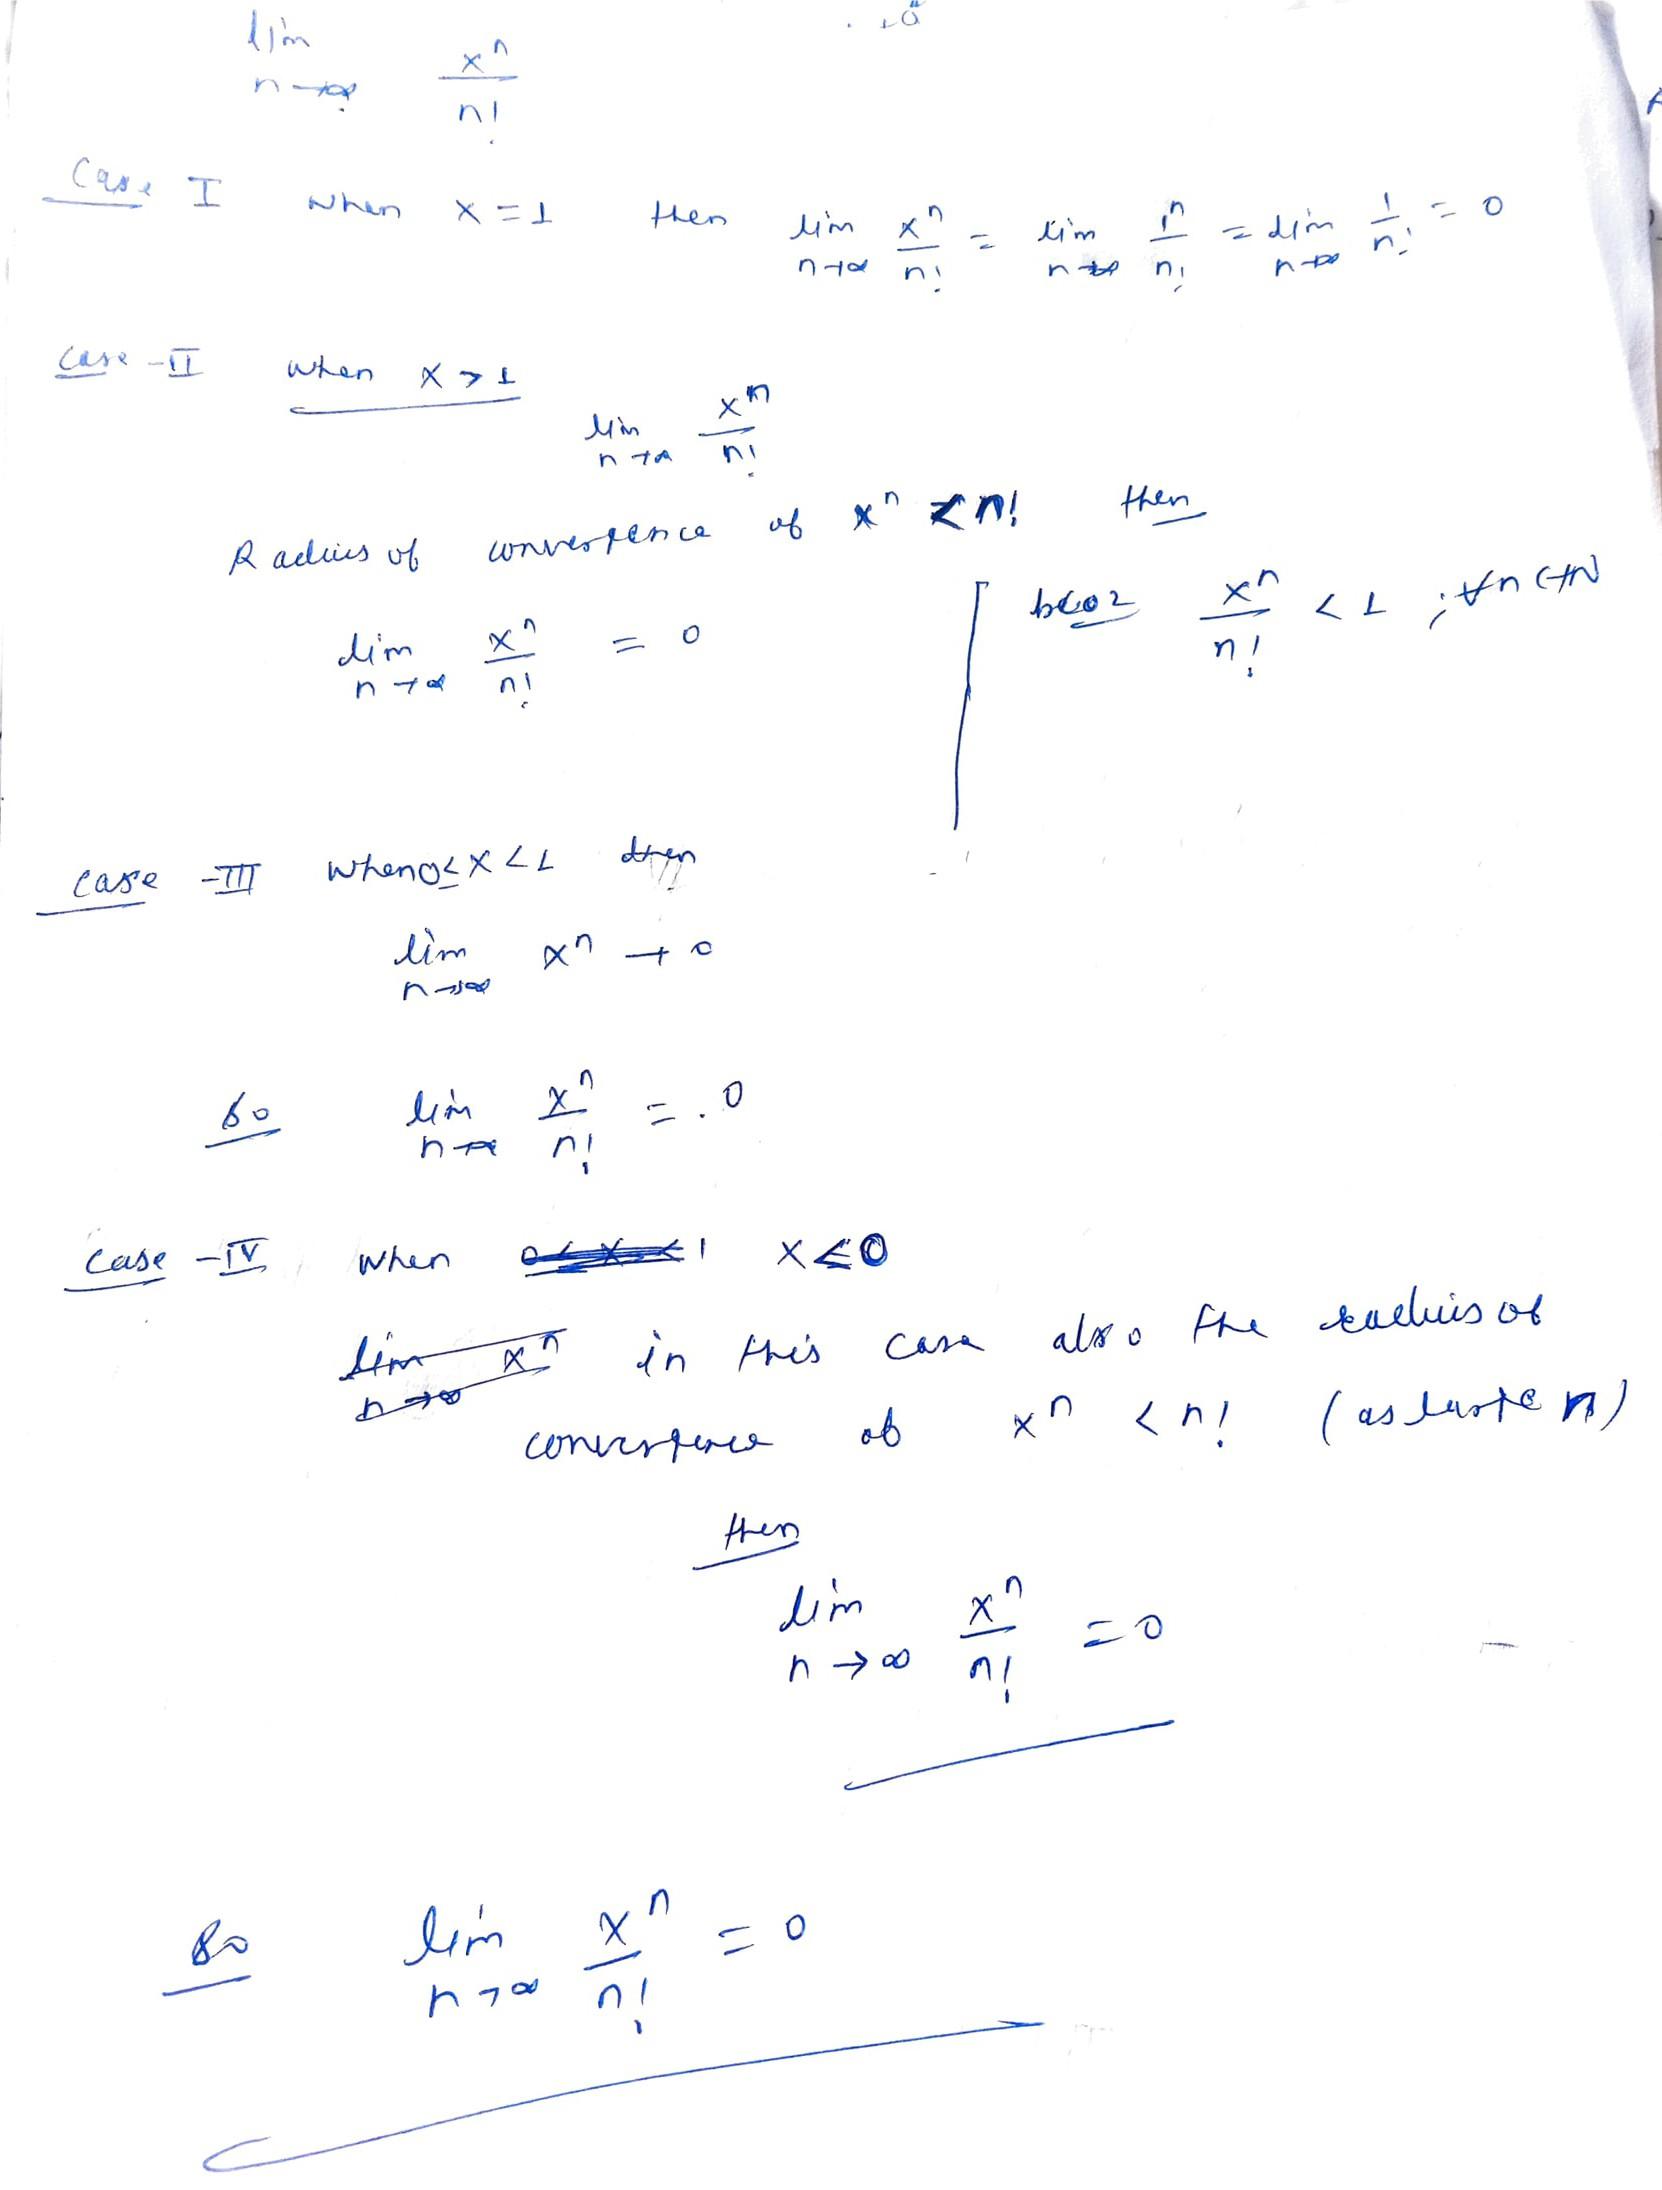 lim n→∞ x^n/n!
Case I when x = 1 then lim n→∞ x^n/n! = lim n→∞ 1^n/n! = lim n→∞ 1/n! = 0
Case-II when x > 1
lim n→∞ x^n/n!
Radius of convergence of x^n < n! then
lim n→∞ x^n/n! = 0
bcoz x^n/n! < 1 ; ∀n∈N
Case-III when 0≤x<1 then
lim n→∞ x^n → 0
So lim n→∞ x^n/n! = 0
Case-IV when x≤0
in this case also the radius of
convergence of x^n < n! (as large n)
then
lim n→∞ x^n/n! = 0
So lim n→∞ x^n/n! = 0